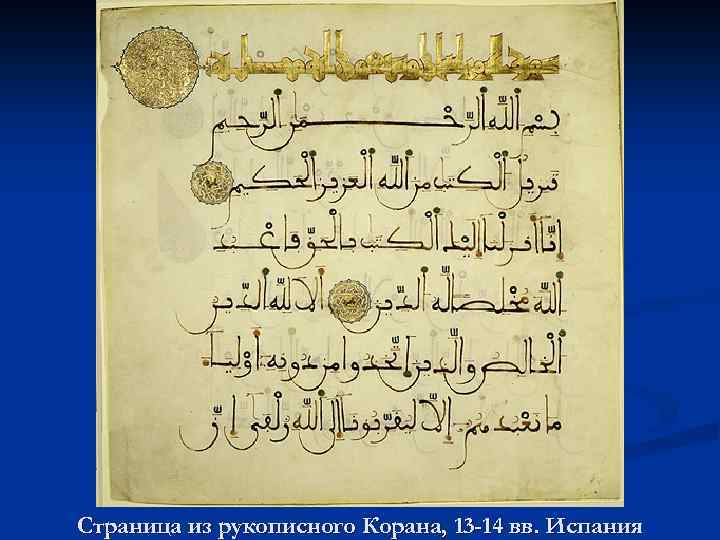 بِسْمِ اللَّهِ الرَّحْمَنِ الرَّحِيمِ
تَنزِيلُ الْكِتَبِ مِنَ اللَّهِ الْعَزِيزِ الْحَكِيمِ
إِنَّا أَنزَلْنَا إِلَيْكَ الْكِتَبَ بِالْحَقِّ فَاعْبُدِ
اللَّهَ مُخْلِصًا لَّهُ الدِّينَ أَلَا لِلَّهِ الدِّينُ
الْخَالِصُ وَالَّذِينَ اتَّخَذُوا مِن دُونِهِ أَوْلِيَاءَ
مَا نَعْبُدُهُمْ إِلَّا لِيُقَرِّبُونَا إِلَى اللَّهِ زُلْفَى إِنَّ
Страница из рукописного Корана, 13-14 вв. Испания